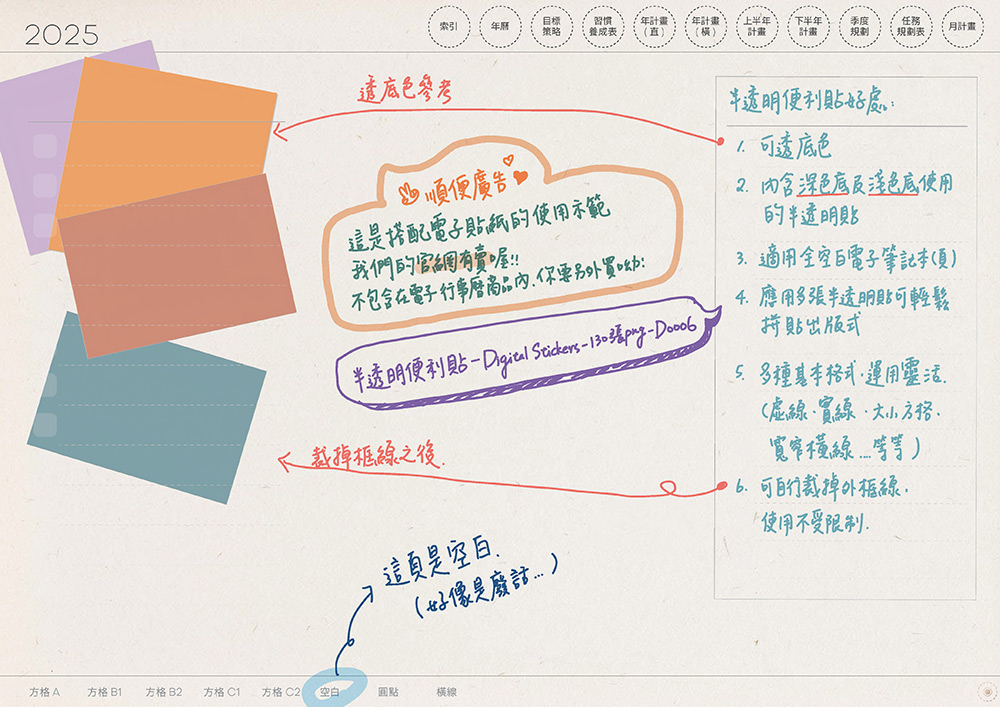 2025
索引
年曆
目標
策略
習慣
養成表
年計畫
(直)
年計畫
(橫)
上半年
計畫
下半年
計畫
季度
規劃
任務
規劃表
月計畫
透底色參考
順便廣告
這是搭配電子貼紙的使用示範
我們的官網有賣喔!!
不包含在電子行事曆商品內.你要另外買呦:
半透明便利貼-Digital Stickers-130張png-D0006
裁掉框線之後.
這頁是空白.
(好像是廢話...)
半透明便利貼好處:
1. 可透底色
2. 內含深色底及淺色底使用
的半透明貼
3. 適用全空白電子筆記本(頁)
4. 應用多張半透明貼可輕鬆
拼貼出版式
5. 多種基本格式.運用靈活.
(虛線.實線.大小方格.
寬窄橫線....等等)
6. 可自行裁掉外框線.
使用不受限制.
方格 A
方格 B1
方格 B2
方格 C1
方格 C2
空白
圓點
橫線